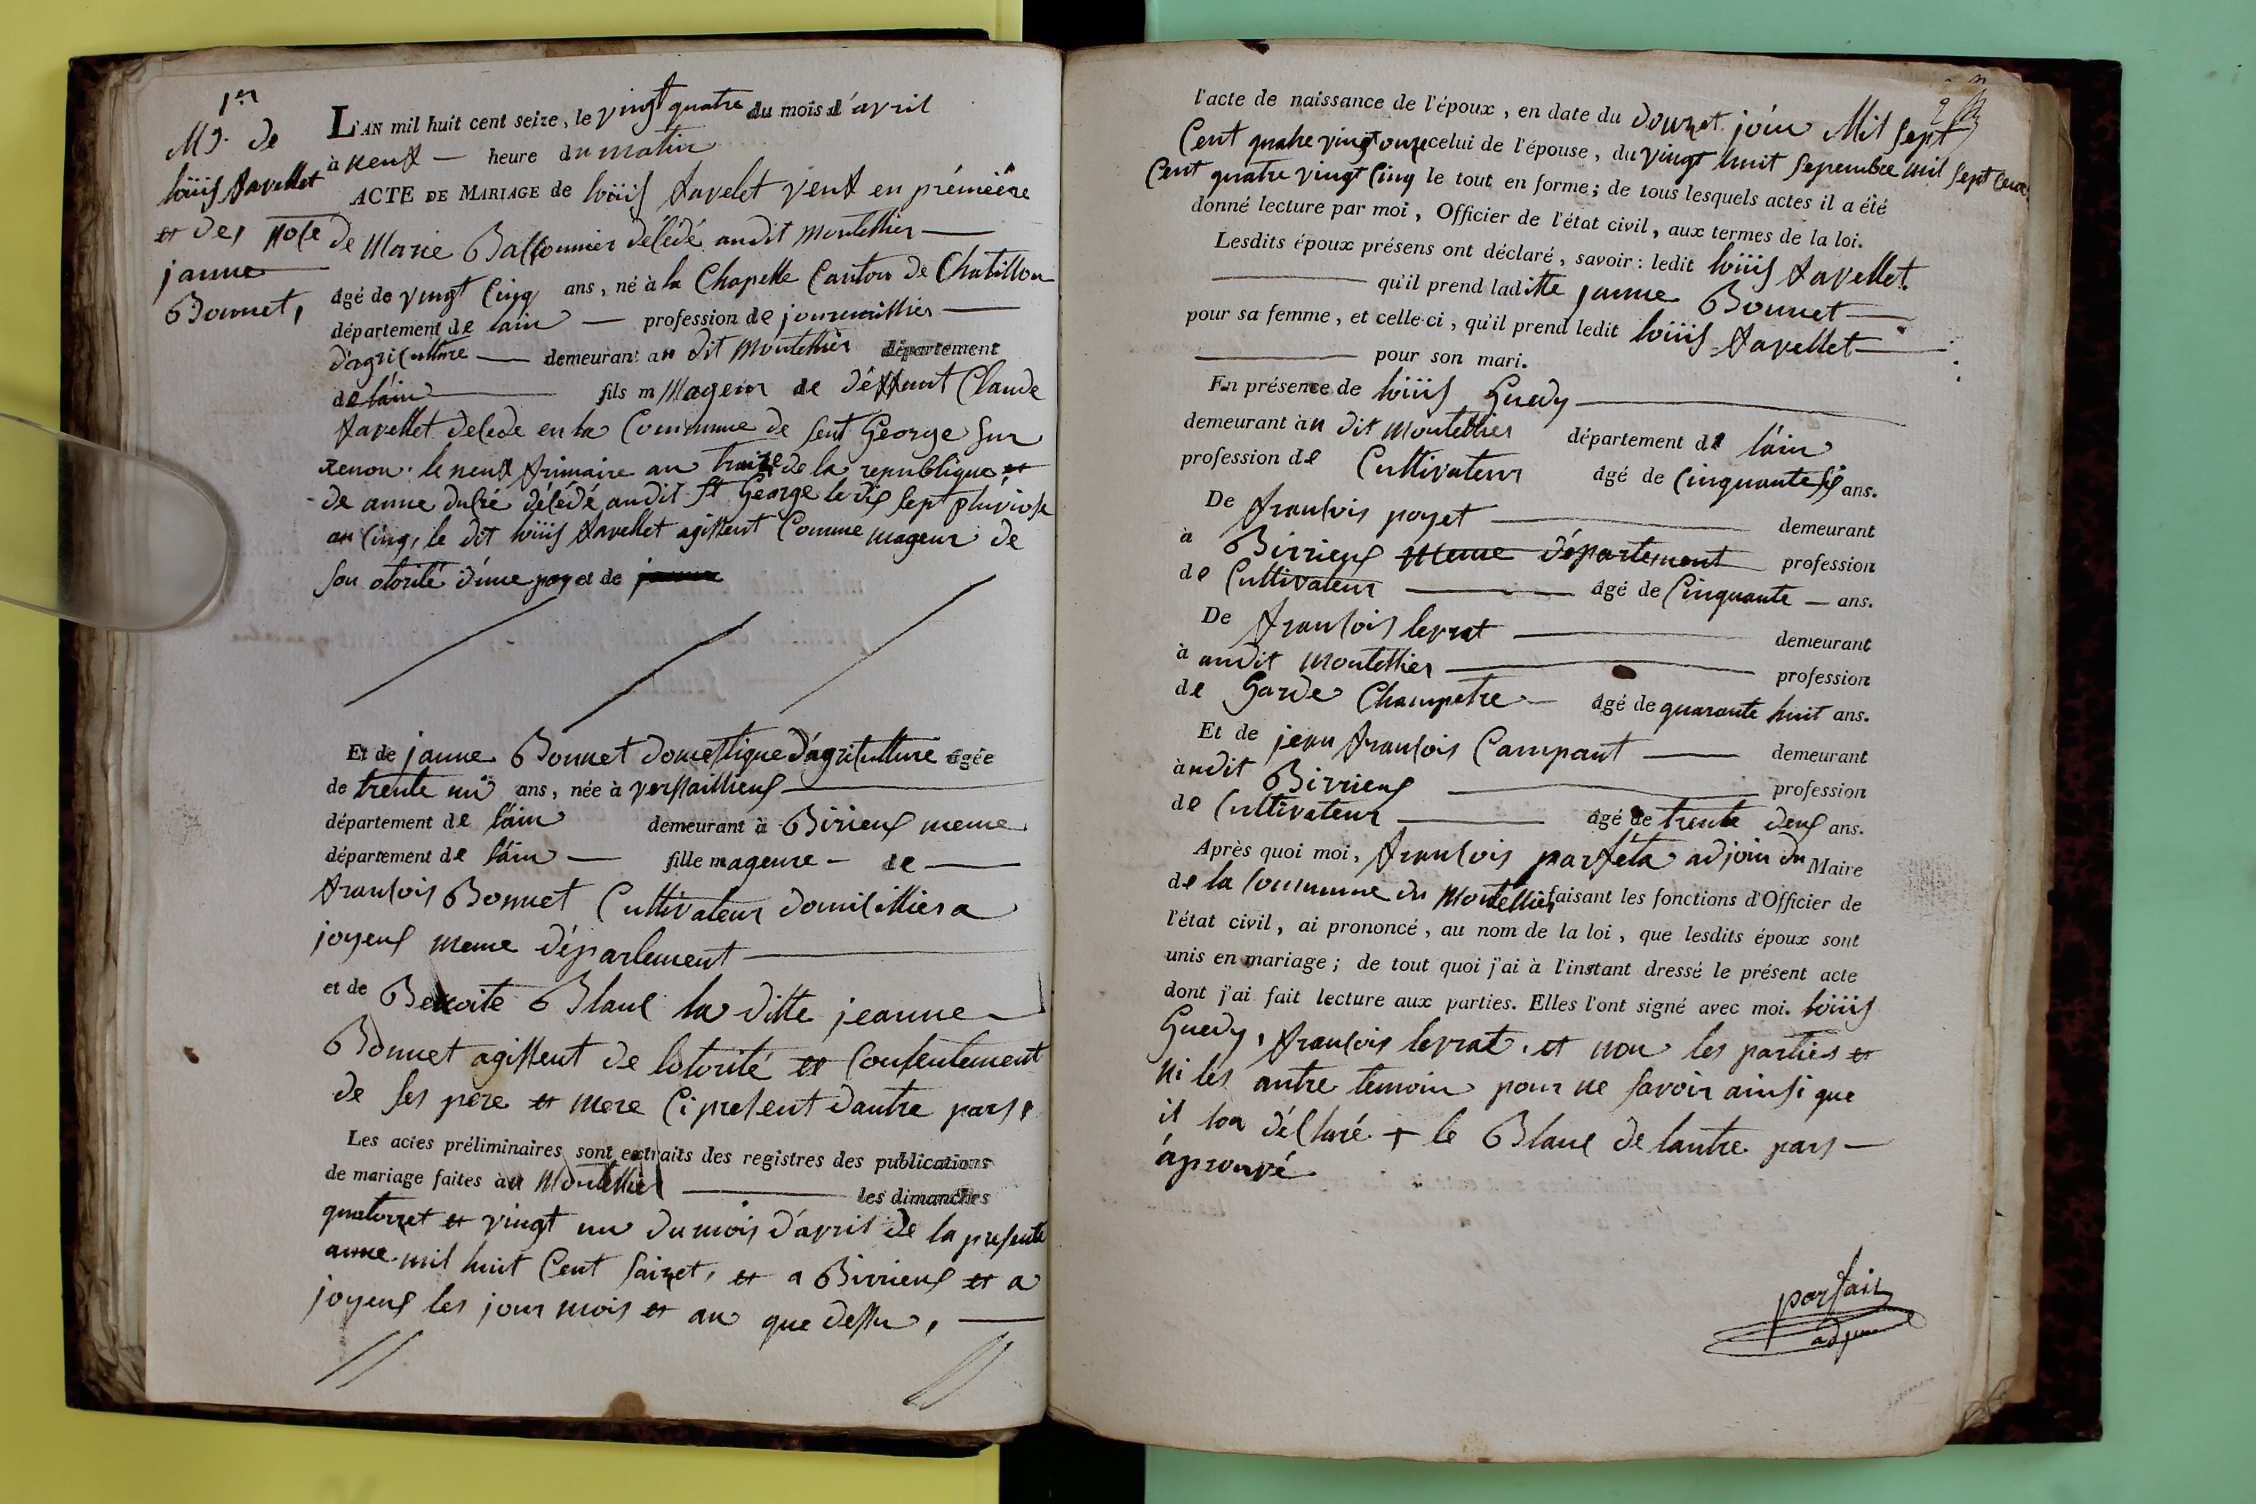 1er
M9. de
loüis favellet
et de, nose
janne
Bonnet,
L'AN mil huit cent seize, le vingt quatre du mois d'avril
à neuf — heure du matin
ACTE DE MARIAGE de loüis favelet veuf en prémière
de Marie Balsonnier délédé audit montellier —
âgé de vingt cinq ans, né à la Chapelle Canton de Chatillon
département de lain — profession de journaillier —
d'agriculture — demeurant au dit Montellier département
de láin — fils m Mageur de déffunt Claude
favellet delede en la Commune de sent George sur
renon. le neuf frimaire an traize de la republique et
de anne dufré délédé audit st George le dis sept pluviose
an cinq, le dit loüis favellet agissent Comme mageur de
son otorité d'une par, et de
Et de janne Bonnet domestique d'agriculture âgée
de trente un ans, née à versaillieux —
département de láin demeurant à Birieux meme
département de láin — fille mageure — de —
francois Bonnet Cultivateur domicillier a
joyeux meme département —
et de Benoite Blanc la ditte jeanne
Bonnet agissent de lotorité et Consentement
de ses père et mere Ci present d'autre pars,
Les actes préliminaires sont extraits des registres des publications
de mariage faites àu Montellier — les dimanches
quatorzet et vingt un du mois d'avril de la presente
anne mil huit Cent saizet, et a Birrieux et a
joyeux les jour mois et an que dessu, —
l'acte de naissance de l'époux, en date du douzet join Mil sept
Cent quatre vingt onze celui de l'épouse, du vingt huit sepembre mil sept Cent
Cent quatre vingt Cinq le tout en forme; de tous lesquels actes il a été
donné lecture par moi, Officier de l'état civil, aux termes de la loi.
Lesdits époux présens ont déclaré, savoir: ledit loüis favellet.
— qu'il prend laditte janne Bonnet —
pour sa femme, et celle-ci, qu'il prend ledit loüis favellet —
— pour son mari.
En présence de loüis Guedy —
demeurant àu dit montellier département de láin
profession de Cultivateur âgé de Cinquante six ans.
De francois poyet — demeurant
à Birrieux meme département profession
de Cultivateur — âgé de Cinquante — ans.
De francois levrat — demeurant
à audit montellier — profession
de Garde Champetre — âgé de quarante huit ans.
Et de jean francois Campant — demeurant
àudit Birrieux — profession
de Cultivateur — âgé de trente deux ans.
Après quoi moi, francois parféta adjoin du Maire
de la Commune du Montellier faisant les fonctions d'Officier de
l'état civil, ai prononcé, au nom de la loi, que lesdits époux sont
unis en mariage; de tout quoi j'ai à l'instant dressé le présent acte
dont j'ai fait lecture aux parties. Elles l'ont signé avec moi. loüis
Guedy, francois levrat. et non les parties et
ni les autre temoin pour ne savoir ainsi que
il lon déClaré + le Blanc de lautre pars —
áprouvé
parfait
adjoin